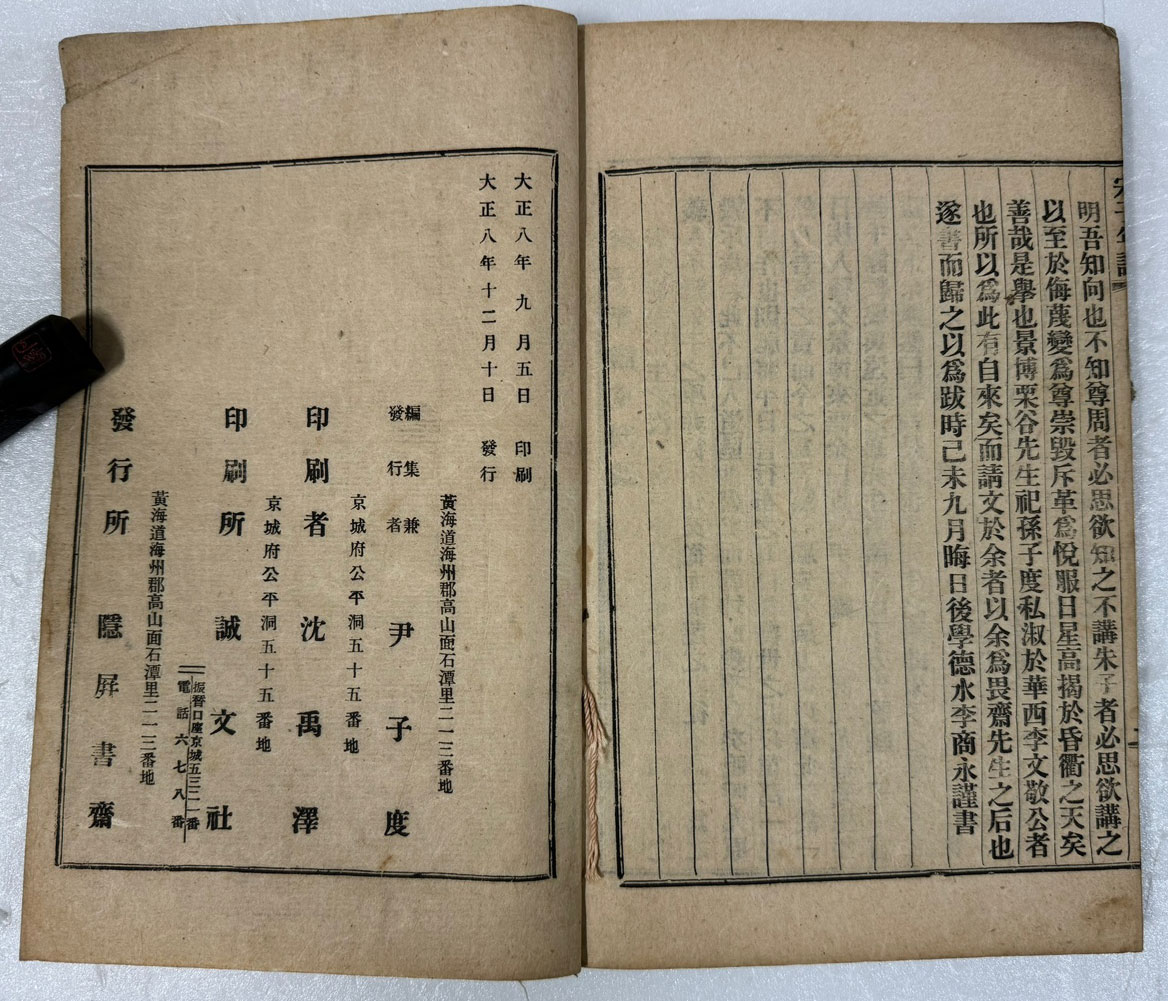 明吾知向也不知尊周者必思欲知之不講朱子者必思欲講之
以至於侮蔑變爲尊崇毀斥革爲悅服日星高揭於昏衢之天矣
善哉是擧也景博栗谷先生祀孫子度私淑於華西李文敬公者
也所以爲此有自來矣而請文於余者以余爲畏齋先生之后也
遂書而歸之以爲跋時己未九月晦日後學德水李商永謹書
大正八年九月五日 印刷
大正八年十二月十日 發行
黃海道海州郡高山面石潭里二一三番地
編集兼
發行者 尹子度
京城府公平洞五十五番地
印刷者 沈禹澤
京城府公平洞五十五番地
印刷所 誠文社
振替口座京城五三二一番
電話六七八番
黃海道海州郡高山面石潭里二一三番地
發行所 隱屛書齋